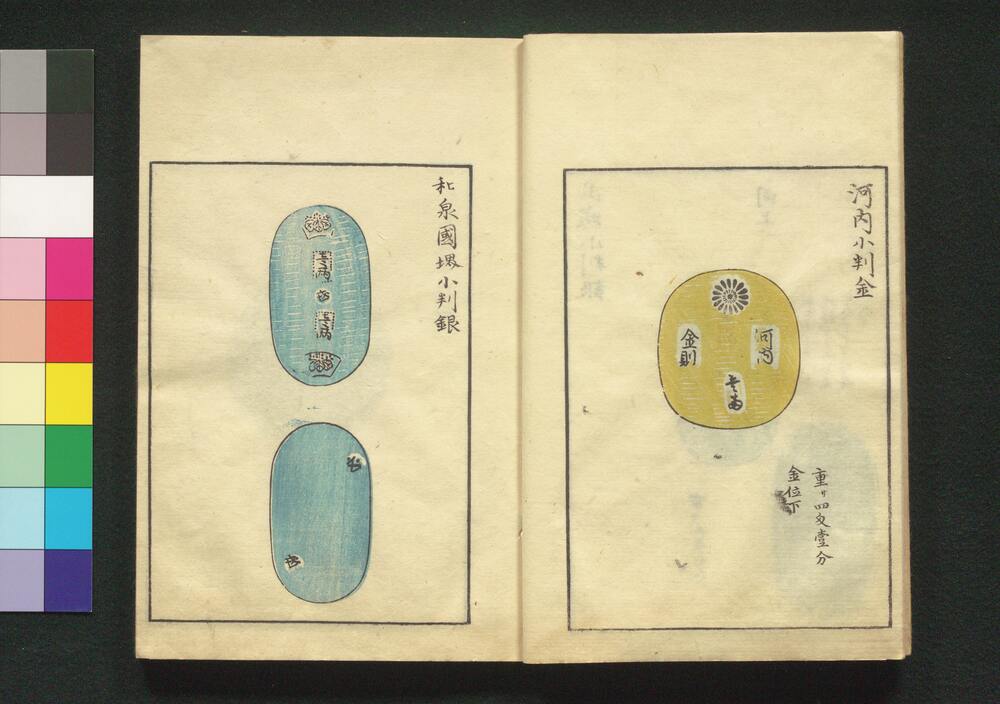 河内小判金
河内
金則
壱両
重サ四匁壹分
金位下
和泉國堺小判銀